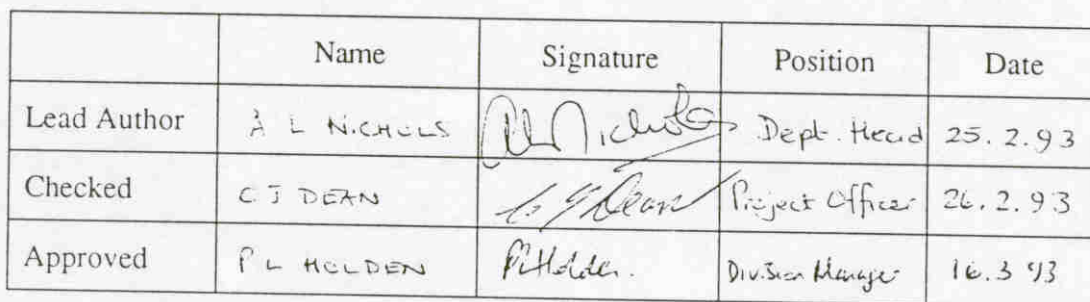 Name Signature Position Date
Lead Author A L NICHOLS AL Nichols Dept. Head 25.2.93
Checked C J DEAN C J Dean Project Officer 26.2.93
Approved P L HOLDEN PL Holden. Division Manager 16.3.93